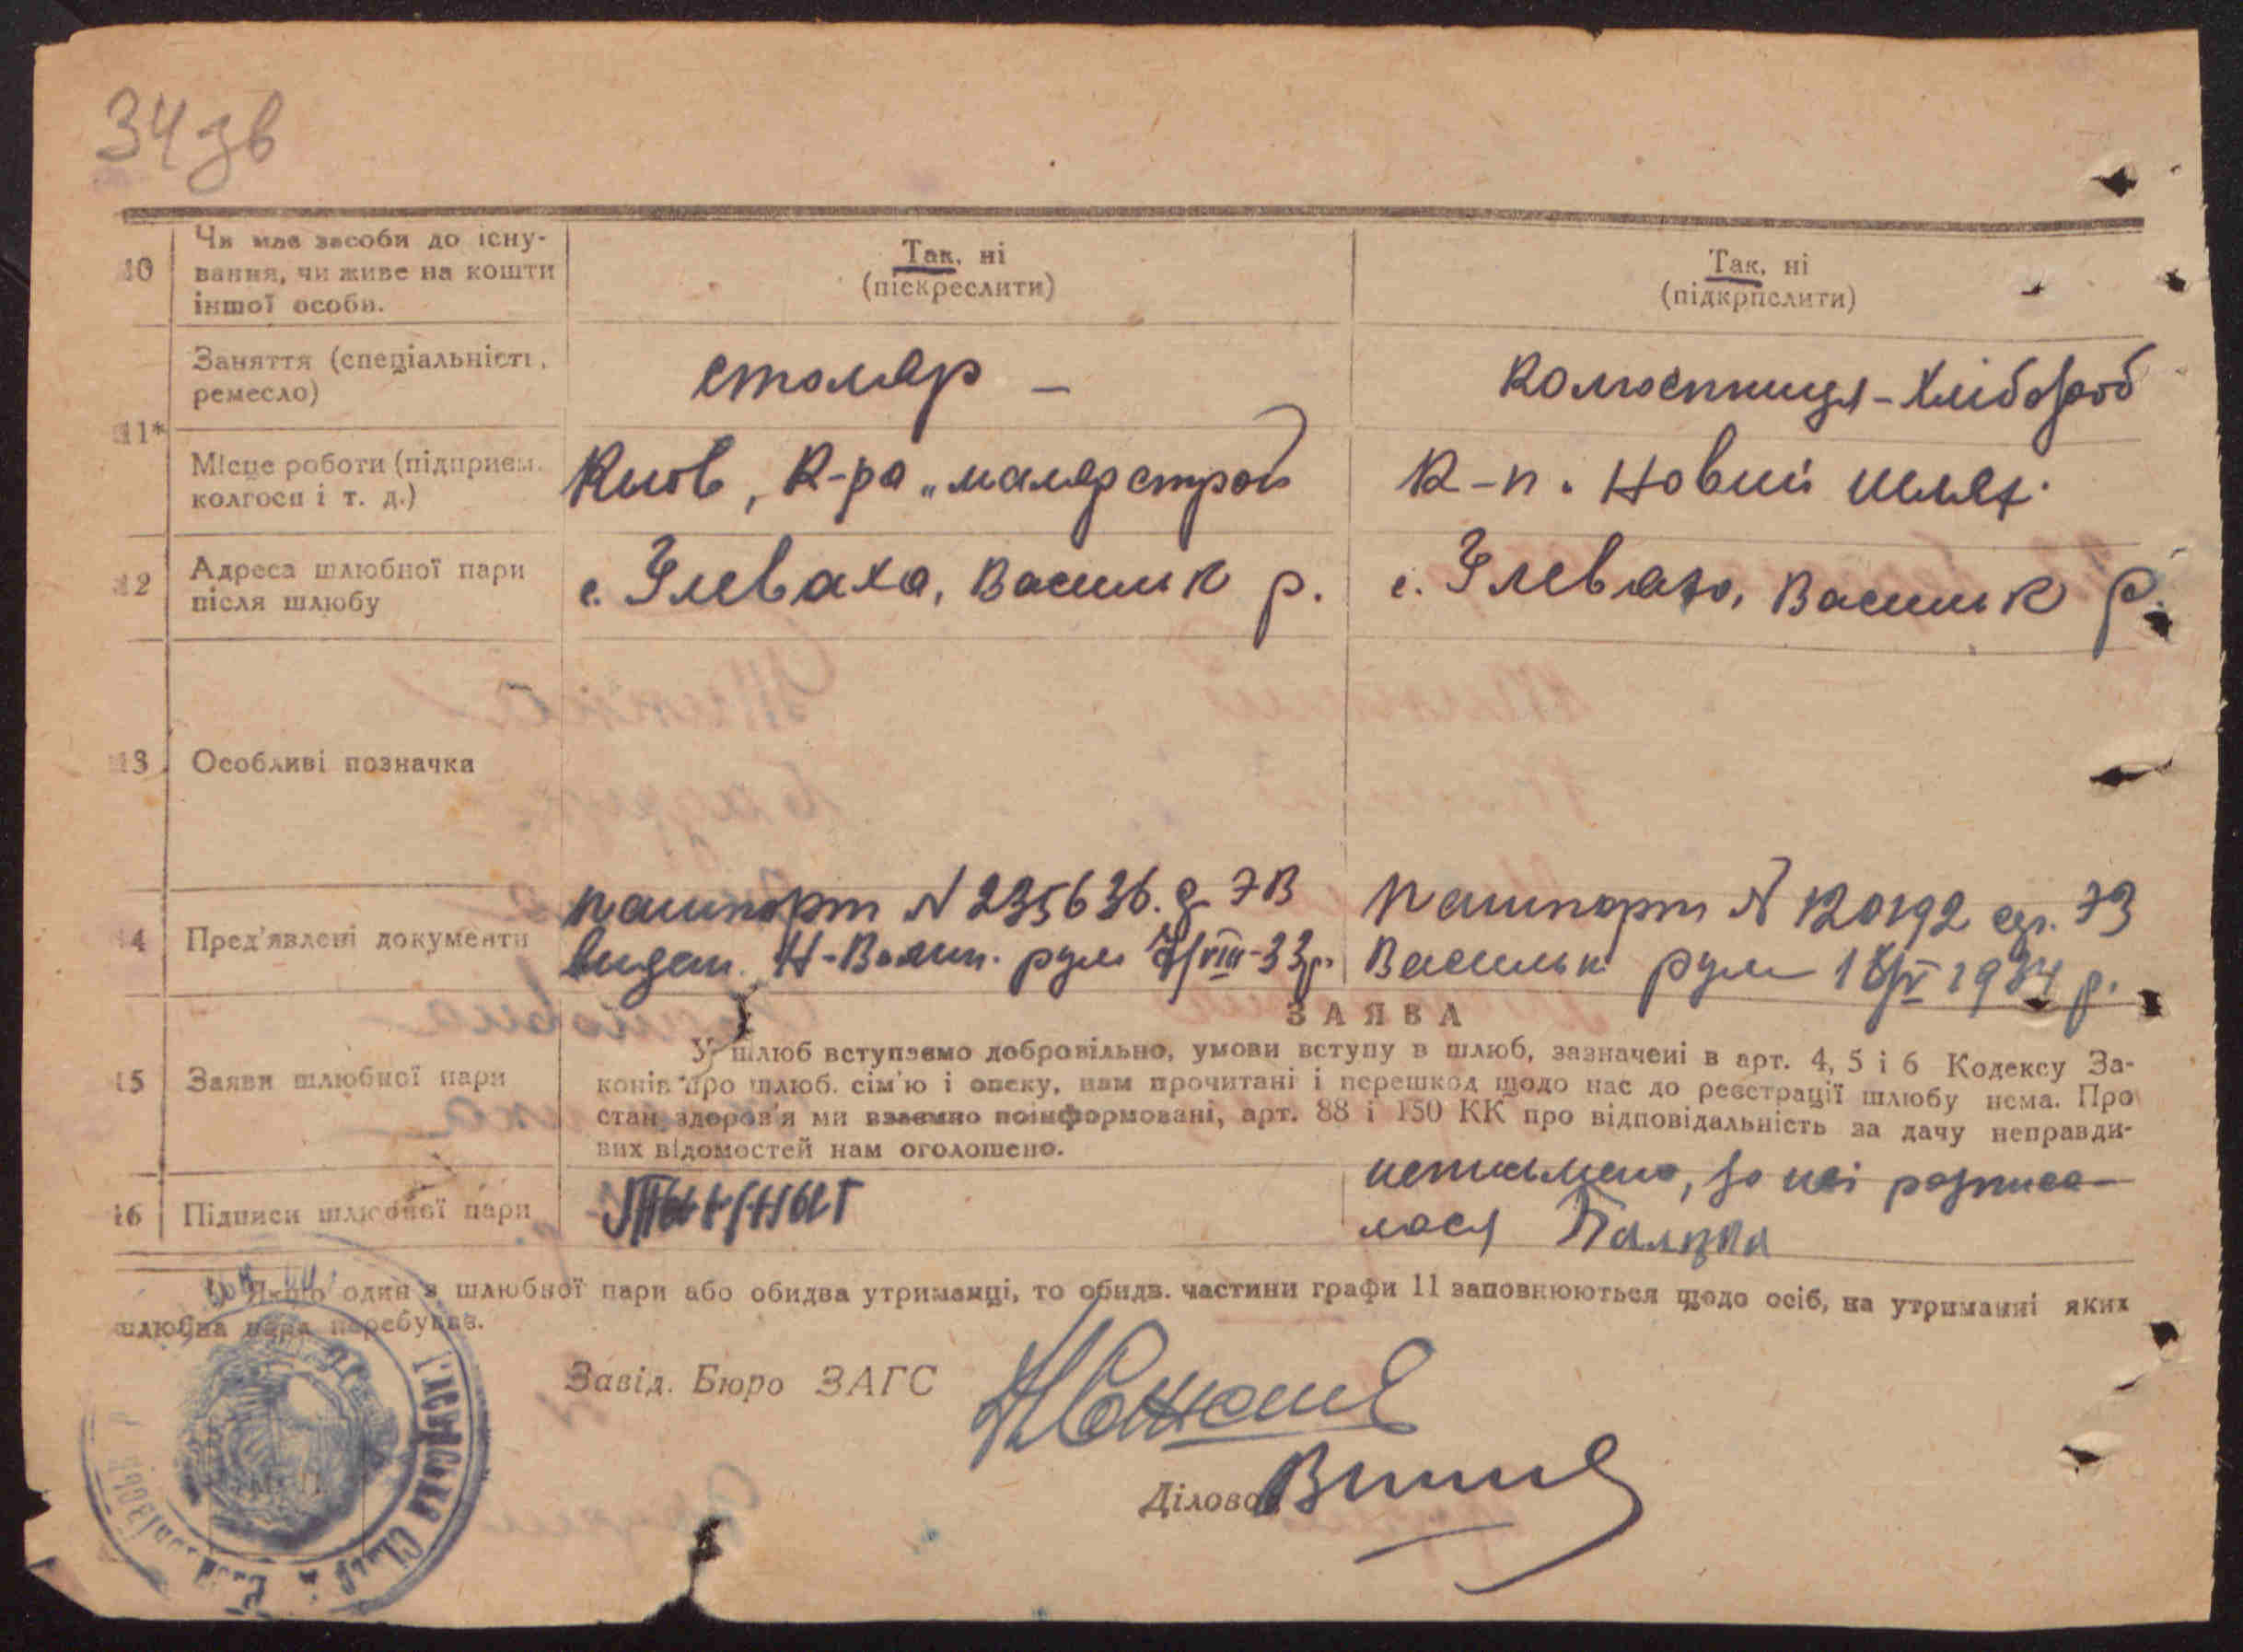 34 зв
10
Чи має засоби до існу-
вання, чи живе на кошти
іншої особи.
Так, ні
(піскреслити)
Так, ні
(підкрпслити)
11*
Заняття (спеціальністı,
ремесло)
столяр –
Колгоспниця – Хлібороб
Місце роботи (підприєм.
колгосп і т. д.)
Київ, К-ра „малярстрой
К-п. Новий шлях.
12
Адреса шлюбної пари
після шлюбу
с. Глеваха, Васильк р.
с. Глеваха, Васильк р.
13
Особливі позначка
14
Пред'явлені документи
пашпорт N 235636. д. ЭВ
видан. Н- рум 7/VIII-33р.
Пашпорт N 120192 ЭЗ
Васильк рум 1934 р.
15
Заяви шлюбної пари
ЗАЯВА
У шлюб вступаємо добровільно, умови вступу в шлюб, зазначені в арт. 4, 5 і 6 Кодексу За-
конів про шлюб. сім'ю і опеку, нам прочитані і перешкод щодо нас до реєстрації шлюбу нема. Про
стан здоров'я ми взаємно поінформовані, арт. 88 і 150 КК про відповідальність за дачу неправди-
вих відомостей нам оголошено.
16
Підписи шлюбної пари
неписьмена, за неї розписа-
лася
Якщо один з шлюбної пари або обидва утриманці, то обидв. частини графи 11 заповнюються щодо осіб, на утриманні яких
шлюбна пара перебуває.
Завід. Бюро ЗАГС
Ділово